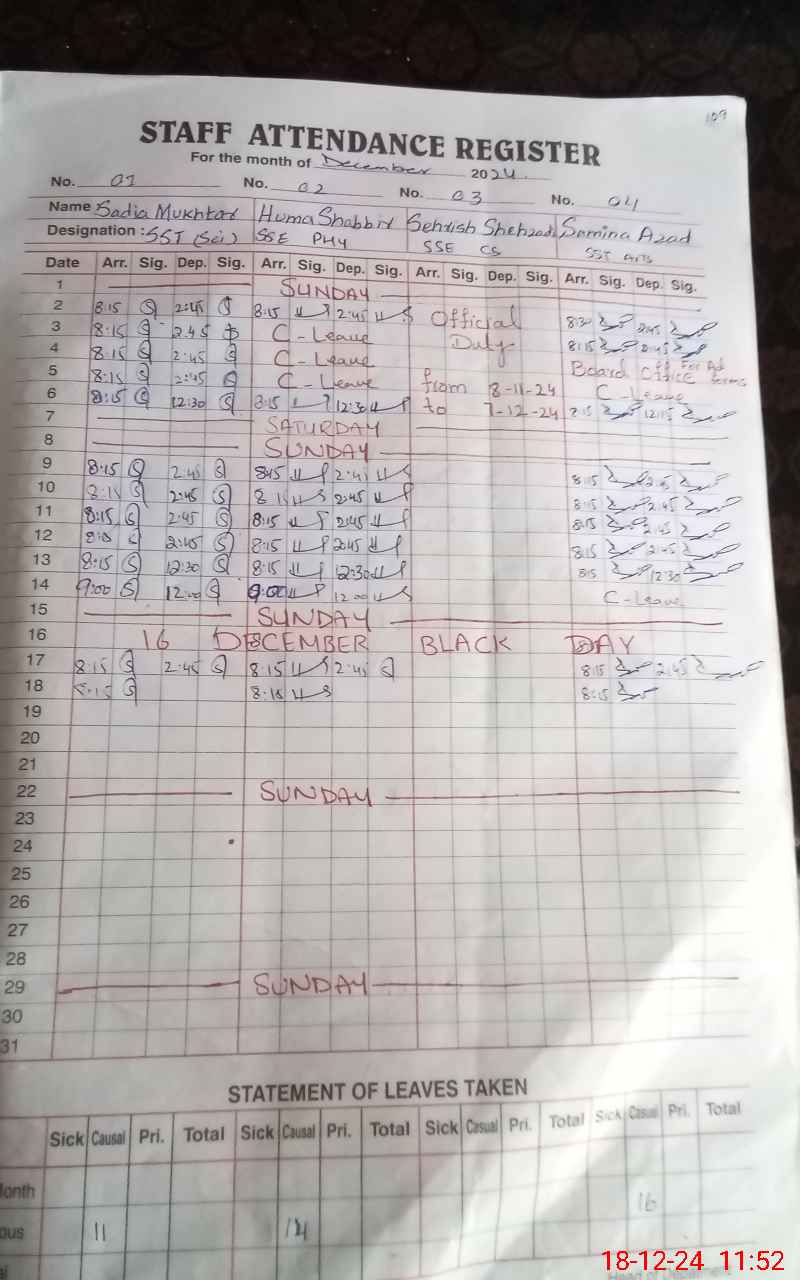 109
STAFF ATTENDANCE REGISTER
For the month of December 2024.
No. 01 No. 02 No. 03 No. 04
Name Sadia Mukhtar Huma Shabbir Sehrish Shehzadi Samina Azad
Designation : SST (Sci) SSE PHY SSE CS SST Arts
Date Arr. Sig. Dep. Sig. Arr. Sig. Dep. Sig. Arr. Sig. Dep. Sig. Arr. Sig. Dep. Sig.
1 SUNDAY
2 8:15 2:45 8:15 2:45 Official 8:30 2:45
3 8:15 2:45 C-Leave Duty 8:15 2:45
4 8:15 2:45 C-Leave Board Office For Ad forms
5 8:15 2:45 C-Leave from 8-11-24 C-Leave
6 8:15 12:30 8:15 12:30 to 7-12-24 8:15 12:15
7 SATURDAY
8 SUNDAY
9 8:15 2:45 8:15 2:45 8:15 2:45
10 8:15 2:45 8:15 2:45 8:15 2:45
11 8:15 2:45 8:15 2:45 8:15 2:45
12 2:45 8:15 2:45 8:15 2:45
13 8:15 12:30 8:15 12:30 8:15 12:30
14 9:00 12:00 9:00 12:00 C-Leave
15 SUNDAY
16 16 DECEMBER BLACK DAY
17 8:15 2:45 8:15 2:45 8:15 2:45
18 8:15 8:15 8:15
19
20
21
22 SUNDAY
23
24
25
26
27
28
29 SUNDAY
30
31
STATEMENT OF LEAVES TAKEN
Sick Causal Pri. Total Sick Causal Pri. Total Sick Casual Pri. Total Sick Casual Pri. Total
onth 16
ous 11 14
18-12-24 11:52